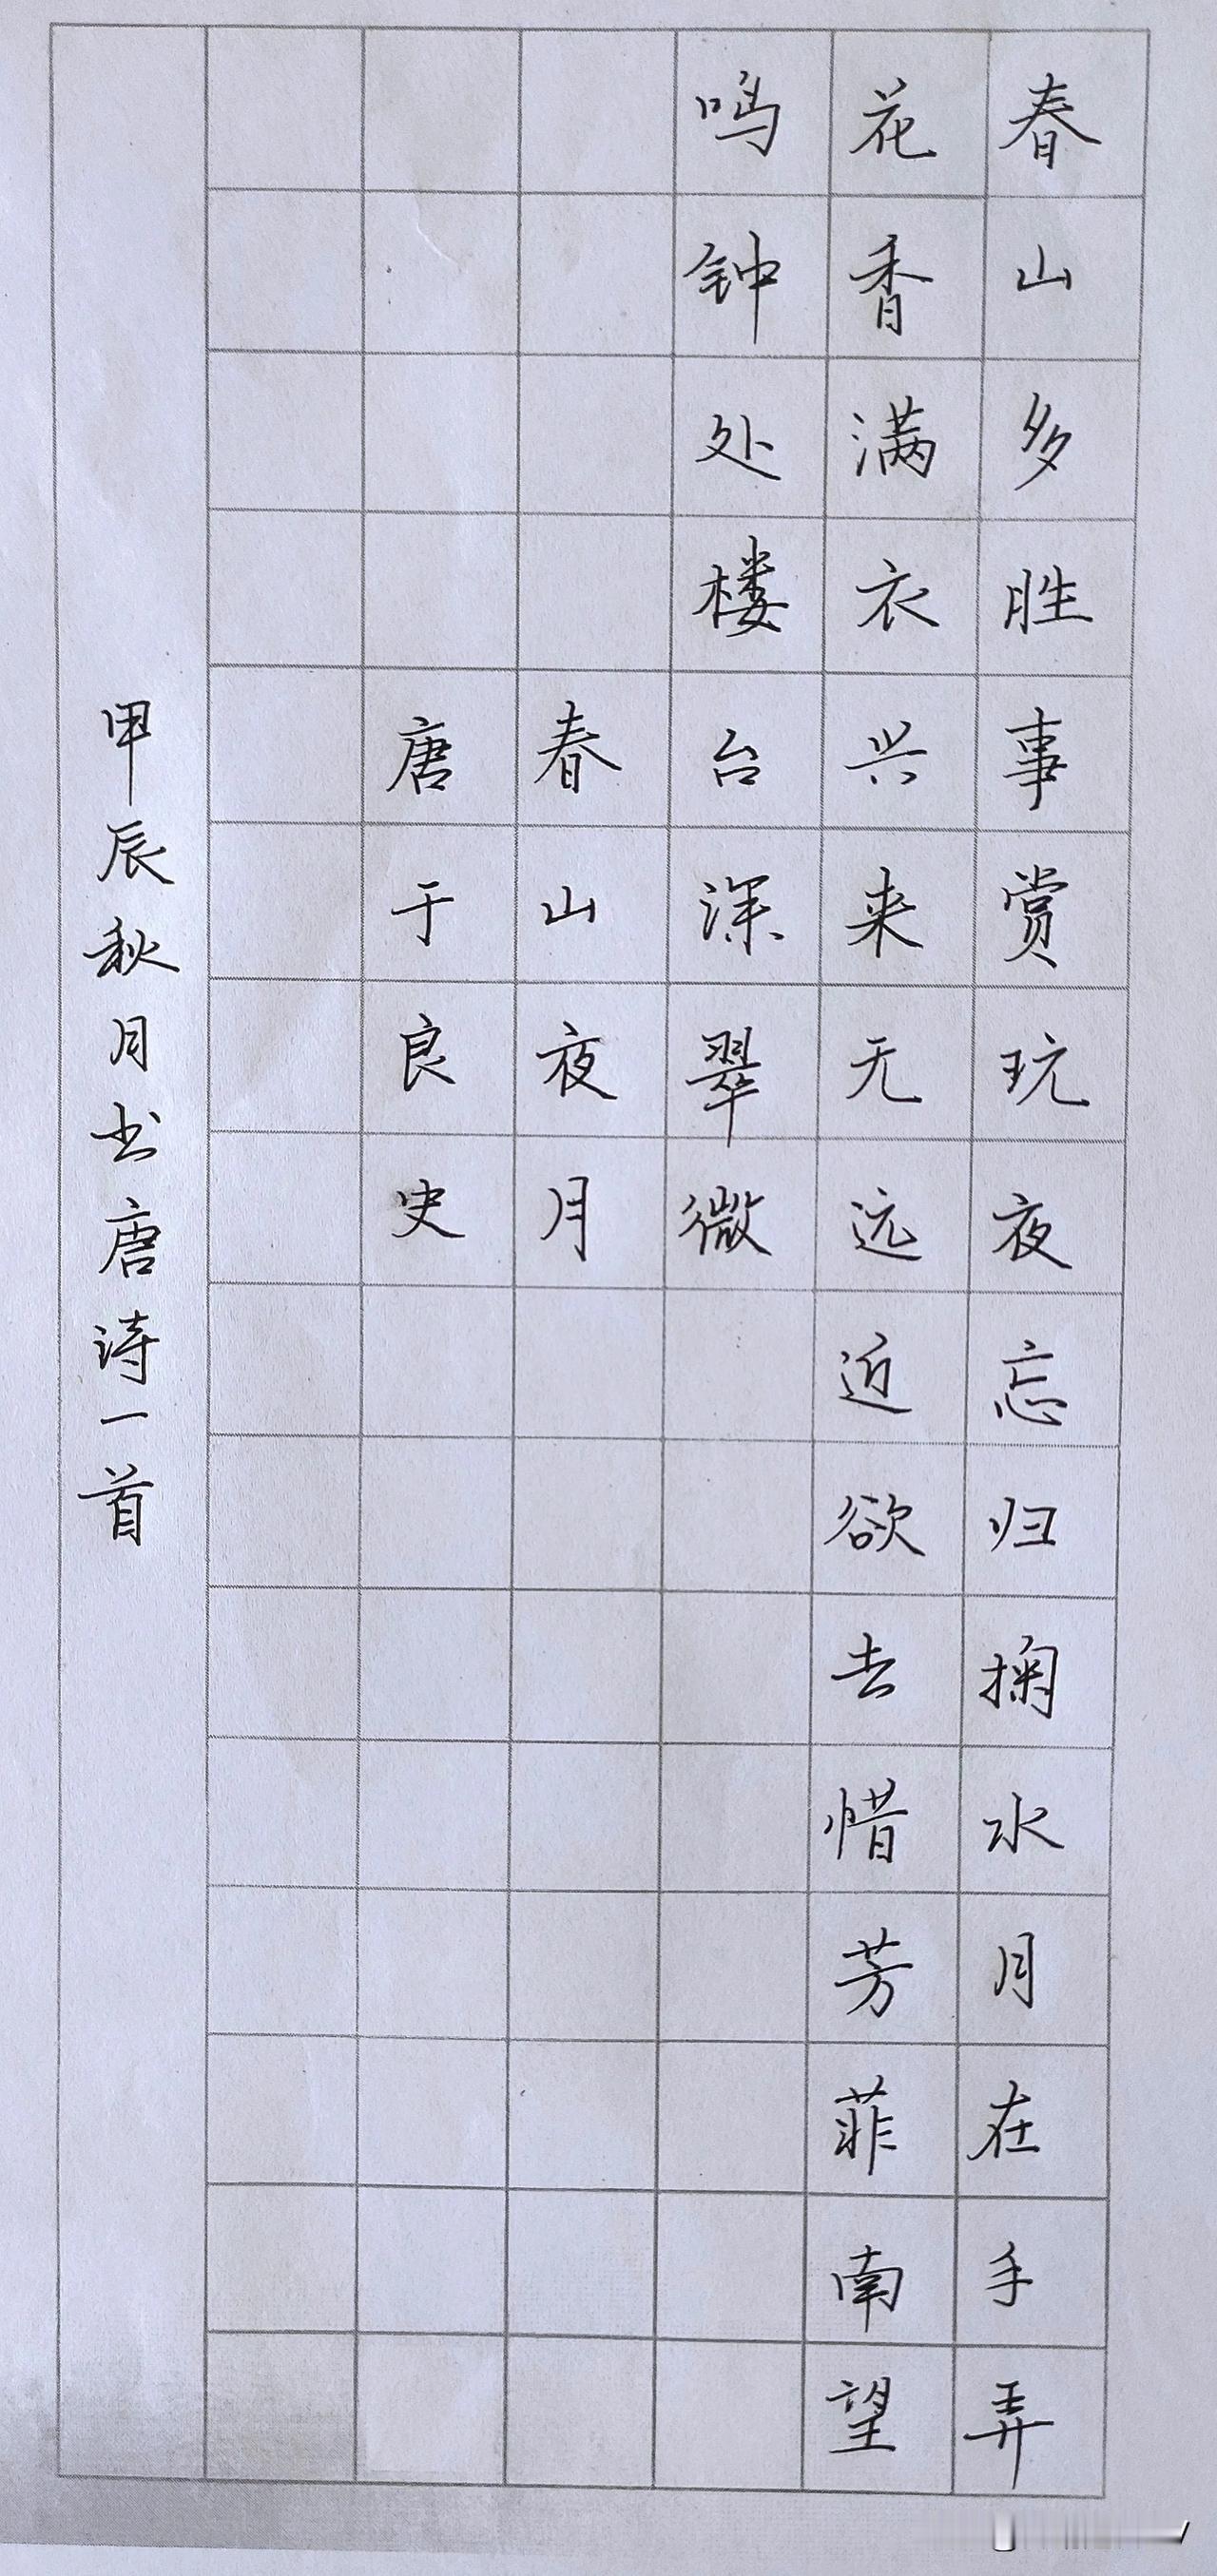 春山多胜事赏玩夜忘归掬水月在手弄
花香满衣兴来无远近欲去惜芳菲南望
鸣钟处楼台深翠微
春山夜月
唐于良史
甲辰秋月书唐诗一首